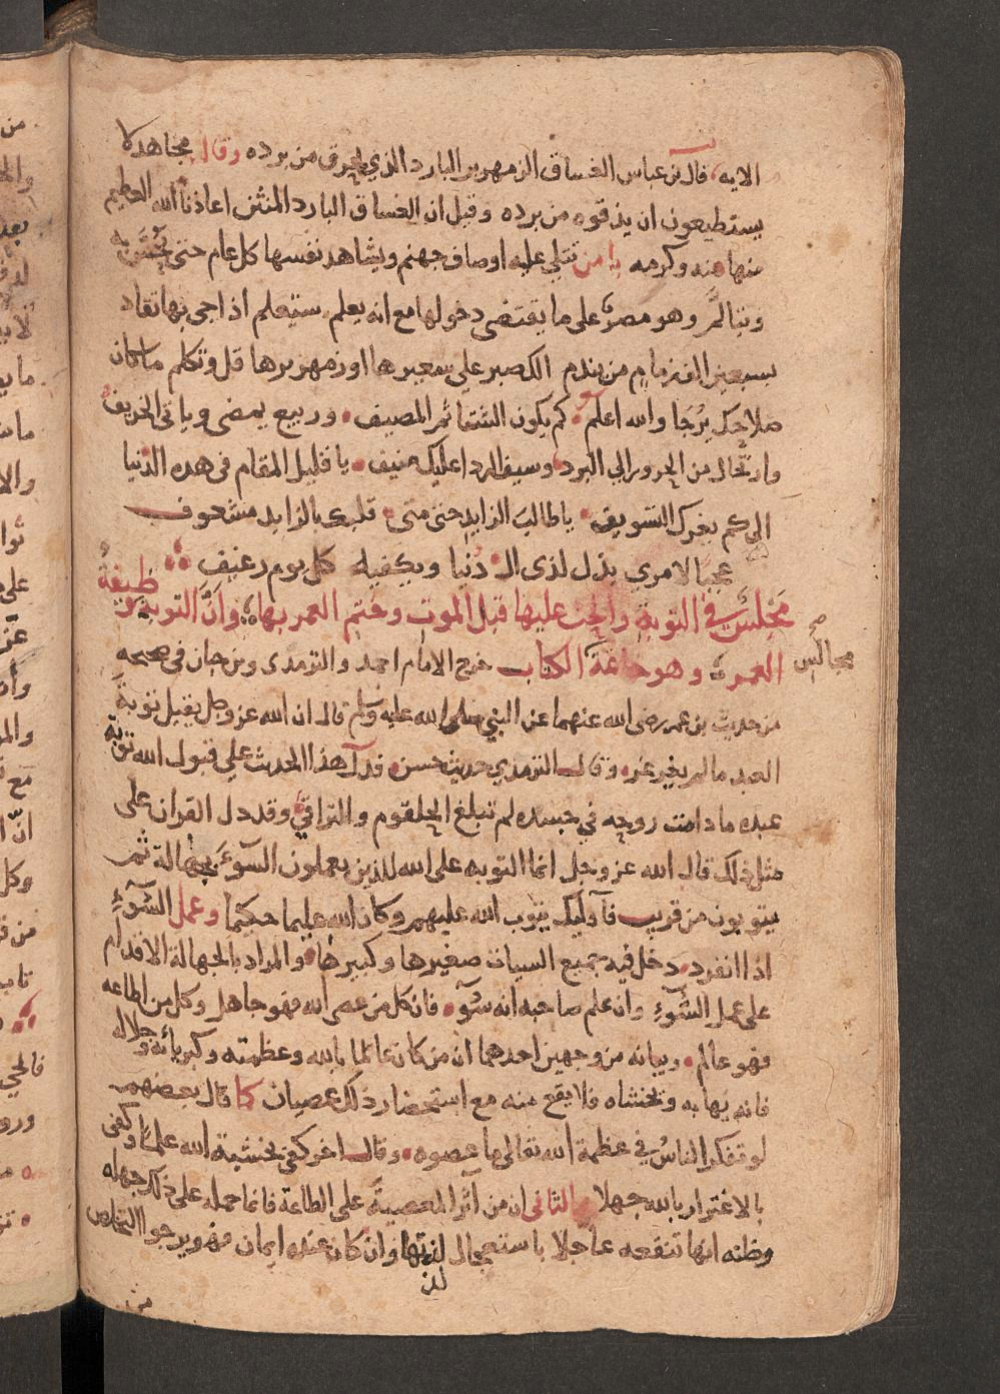 الايه، قال بن عباس الغساق الزمهرير البارد الذي يحرق من برده وقال مجاهد لا
يستطيعون ان يذقوه من برده وقيل ان الغساق البارد المنتن اعاذنا الله العظيم
منها بمنه وكرمه يا من تتلي عليه اوصاف جهنم ويشاهد نفسها كل عام حتى يحس به
ويتالم وهو مصر على ما يقتضى دخولها مع انه يعلم ستعلم اذا جى بها تقاد
بسبعين الف زمام من يندم الك صبر على سعيرها او زمهريرها قل وتكلم ما كان
صلاحك يرجا والله اعلم كم يكون الشتا ثم المصيف وربيع يمضى وياتى الخريف
وارتحال من الحرور الي البرد وسيف الردا عليك منيف يا قليل المقام فى هذه الدنيا
الى كم يغرك التسويف يا طالب الزايد حتى متى قلبك بالزايد مشغوف
عجبا لامرى يذل لذى الدنيا ويكفيه كل يوم رغيف
مجلس فى التوبة والحث عليها قبل الموت وختم العمر بها، وان التوبة وظيفة
العمر، وهو خاتمة الكتاب خرج الامام احمد والترمدى وبن حبان فى صحيحه
مجالس
من حديث بن عمر رضى الله عنهما عن النبي صلى الله عليه وسلم قال ان الله عز وجل يقبل توبة
العبد ما لم يغرغر، وقال الترمدي حديث حسن، فدل هذا الحديث على قبول الله توبة
عبده ما دامت روحه في جسده لم تبلغ الحلقوم والتراقي، وقد دل القران على
مثل ذلك قال الله عز وجل انما التوبه على الله للذين يعملون السوء بجهالة ثم
يتوبون من قريب فآوليك يتوب الله عليهم وكان الله عليما حكيما وعمل السوء
اذا انفرد دخل فيه جميع السيات صغيرها وكبيرها، والمراد بالجهالة الاقدام
على عمل السوء وان علم صاحبه انه سوء، فان كل من عصى الله فهو جاهل وكل من اطاعه
فهو عالم، وبيانه من وجهين احدهما ان من كان عالما بالله وعظمته وكبريائه وجلاله
فانه يهابه ويخشاه فلا يقع منه مع استحضار ذلك عصيان كما قال بعضهم
لو تفكر الناس في عظمة الله تعالى ما عصوه، وقال اخر كفى بخشية الله علما وكفى
بالاغترار بالله جهلا والثانى ان من آثر المعصية على الطاعة فانما حمله على ذلك جهله
وظنه انها تنفعه عاجلا باستعجال لذتها وان كان عنده ايمان فهو يرجوا التخلص
لذ
من